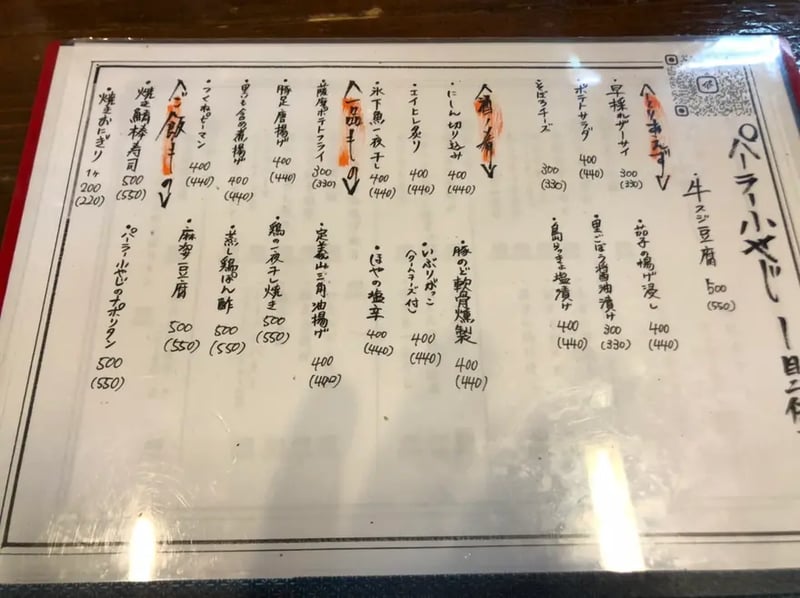 パーラー小やじ
牛スジ豆腐
500
(550)
〈とりあえず〉
早採れザーサイ
300
(330)
ポテトサラダ
400
(440)
そぼろチーズ
300
(330)
茄子の揚げ浸し
400
(440)
里ごぼう醤油漬け
300
(330)
島らっきょ塩漬け
400
(440)
〈酒肴〉
にしん切り込み
400
(440)
エイヒレ炙り
400
(440)
氷下魚一夜干し
400
(440)
豚のど軟骨燻製
400
(440)
いぶりがっこ
(クリームチーズ付)
400
(440)
ほやの塩辛
400
(440)
〈一品もの〉
薩摩ポテトフライ
300
(330)
豚足唐揚げ
400
(440)
里いも含め煮揚げ
400
(440)
つくねピーマン
400
(440)
定義山三角油揚げ
400
(400)
鶏の一夜干し焼き
500
(550)
蒸し鶏ぽん酢
500
(550)
麻婆豆腐
500
(550)
〈ご飯もの〉
焼き鯖棒寿司
500
(550)
焼きおにぎり
1ケ
200
(220)
パーラー小やじのナポリタン
500
(550)